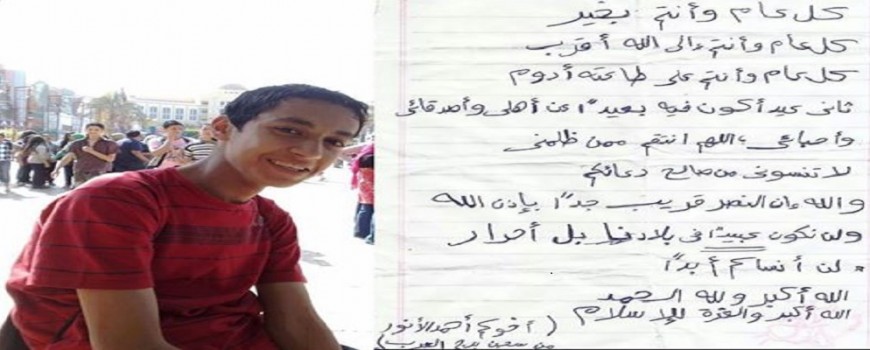 كل عام وأنتم بخير
كل عام وأنتم إلى الله أقرب
كل عام وأنتم على طاعته أدوم
ثاني عيد أكون فيه بعيدًا عن أهلي وأصدقائي
وأحبابي، اللهم انتقم ممن ظلمني
لا تنسوني من صالح دعائكم
والله إن النصر قريب جدًا بإذن الله
ولن نكون عبيدًا في بلادنا بل أحرار
* لن أنساكم أبدًا
الله أكبر ولله الحمد
الله أكبر والعزة للإسلام
(أخوكم أحمد الأنور
من سجن برج العرب)